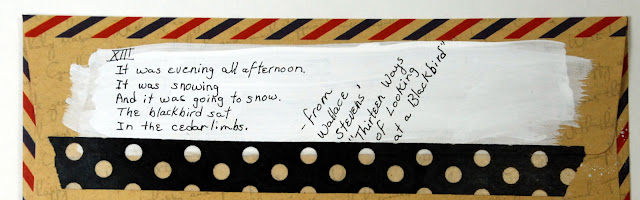 XIII
It was evening all afternoon.
It was snowing
And it was going to snow.
The blackbird sat
In the cedar limbs.
-from
Wallace
Stevens'
"Thirteen Ways
of Looking
at a Blackbird"